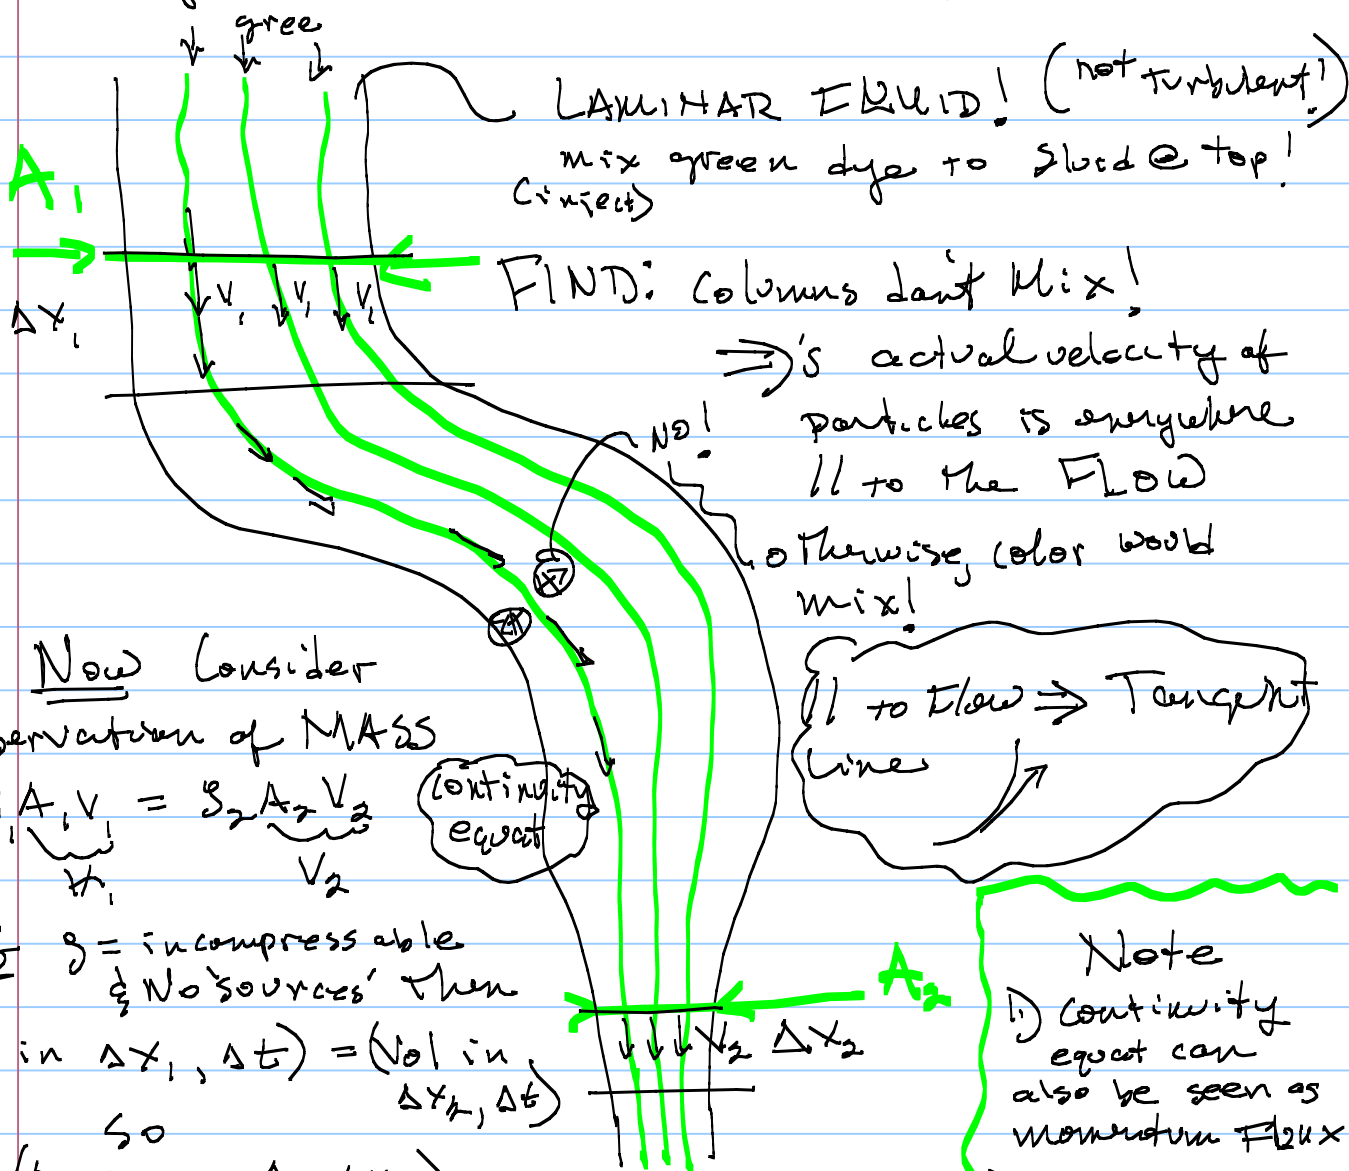 gree
LAMINAR FLUID! (not turbulent!)
mix green dye to fluid @ top!
(inject)
A₁
FIND: Columns don't Mix!
ΔX₁
V₁ V₁ V₁
⇒'s actual velocity of
particles is everywhere
// to the FLOW
NO!
otherwise, color would
mix!
Now Consider
ervation of MASS
₁A₁V₁ = ρ₂A₂V₂
V₁ V₂
Continuity
equat
// to Flow ⇒ Tangent
Lines
ρ = incompressable
& No 'sources' then
in ΔX₁, Δt) = (Vol in
ΔX₂, Δt)
So
A₂
V₂ ΔX₂
Note
1.) Continuity
equat can
also be seen as
momentum Flux